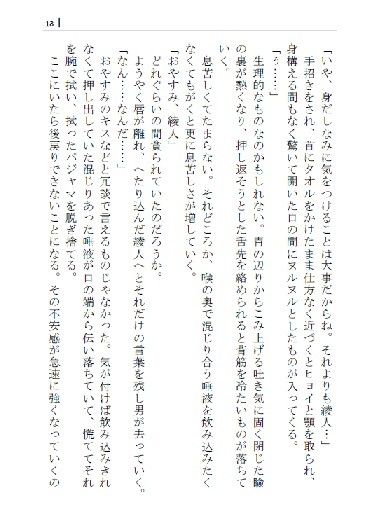 18
「いや、身だしなみに気をつけることは大事だからね。それよりも綾人…」
手招きをされ、首にタオルをかけたまま仕方なく近づくとヒョイと顎を取られ、
身構える間もなく驚いて開いた口の間にヌルヌルとしたものが入ってくる。
「う……」
生理的なものなのかもしれない。胃の辺りからこみ上げる吐き気に固く閉じた瞼
の裏が熱くなり、押し返そうとした舌先を絡められると背筋を冷たいものが落ちて
いく。
息苦しくてたまらない。それどころか、喉の奥で混じり合う唾液を飲み込みたく
なくてもがくと更に息苦しさが増していく。
「おやすみ、綾人」
どれぐらいの間貪られていたのだろうか。
ようやく唇が離れ、へたり込んだ綾人へとそれだけの言葉を残し男が去っていく。
「なん……なんだ……」
おやすみのキスなどと冗談で言えるものじゃなかった。気が付けば飲み込みきれ
なくて押し出していた混じりあった唾液が口の端から伝い落ちていて、慌ててそれ
を腕で拭い、拭ったパジャマを脱ぎ捨てる。
ここにいたら後戻りできないことになる。その不安感が急速に強くなっていくの